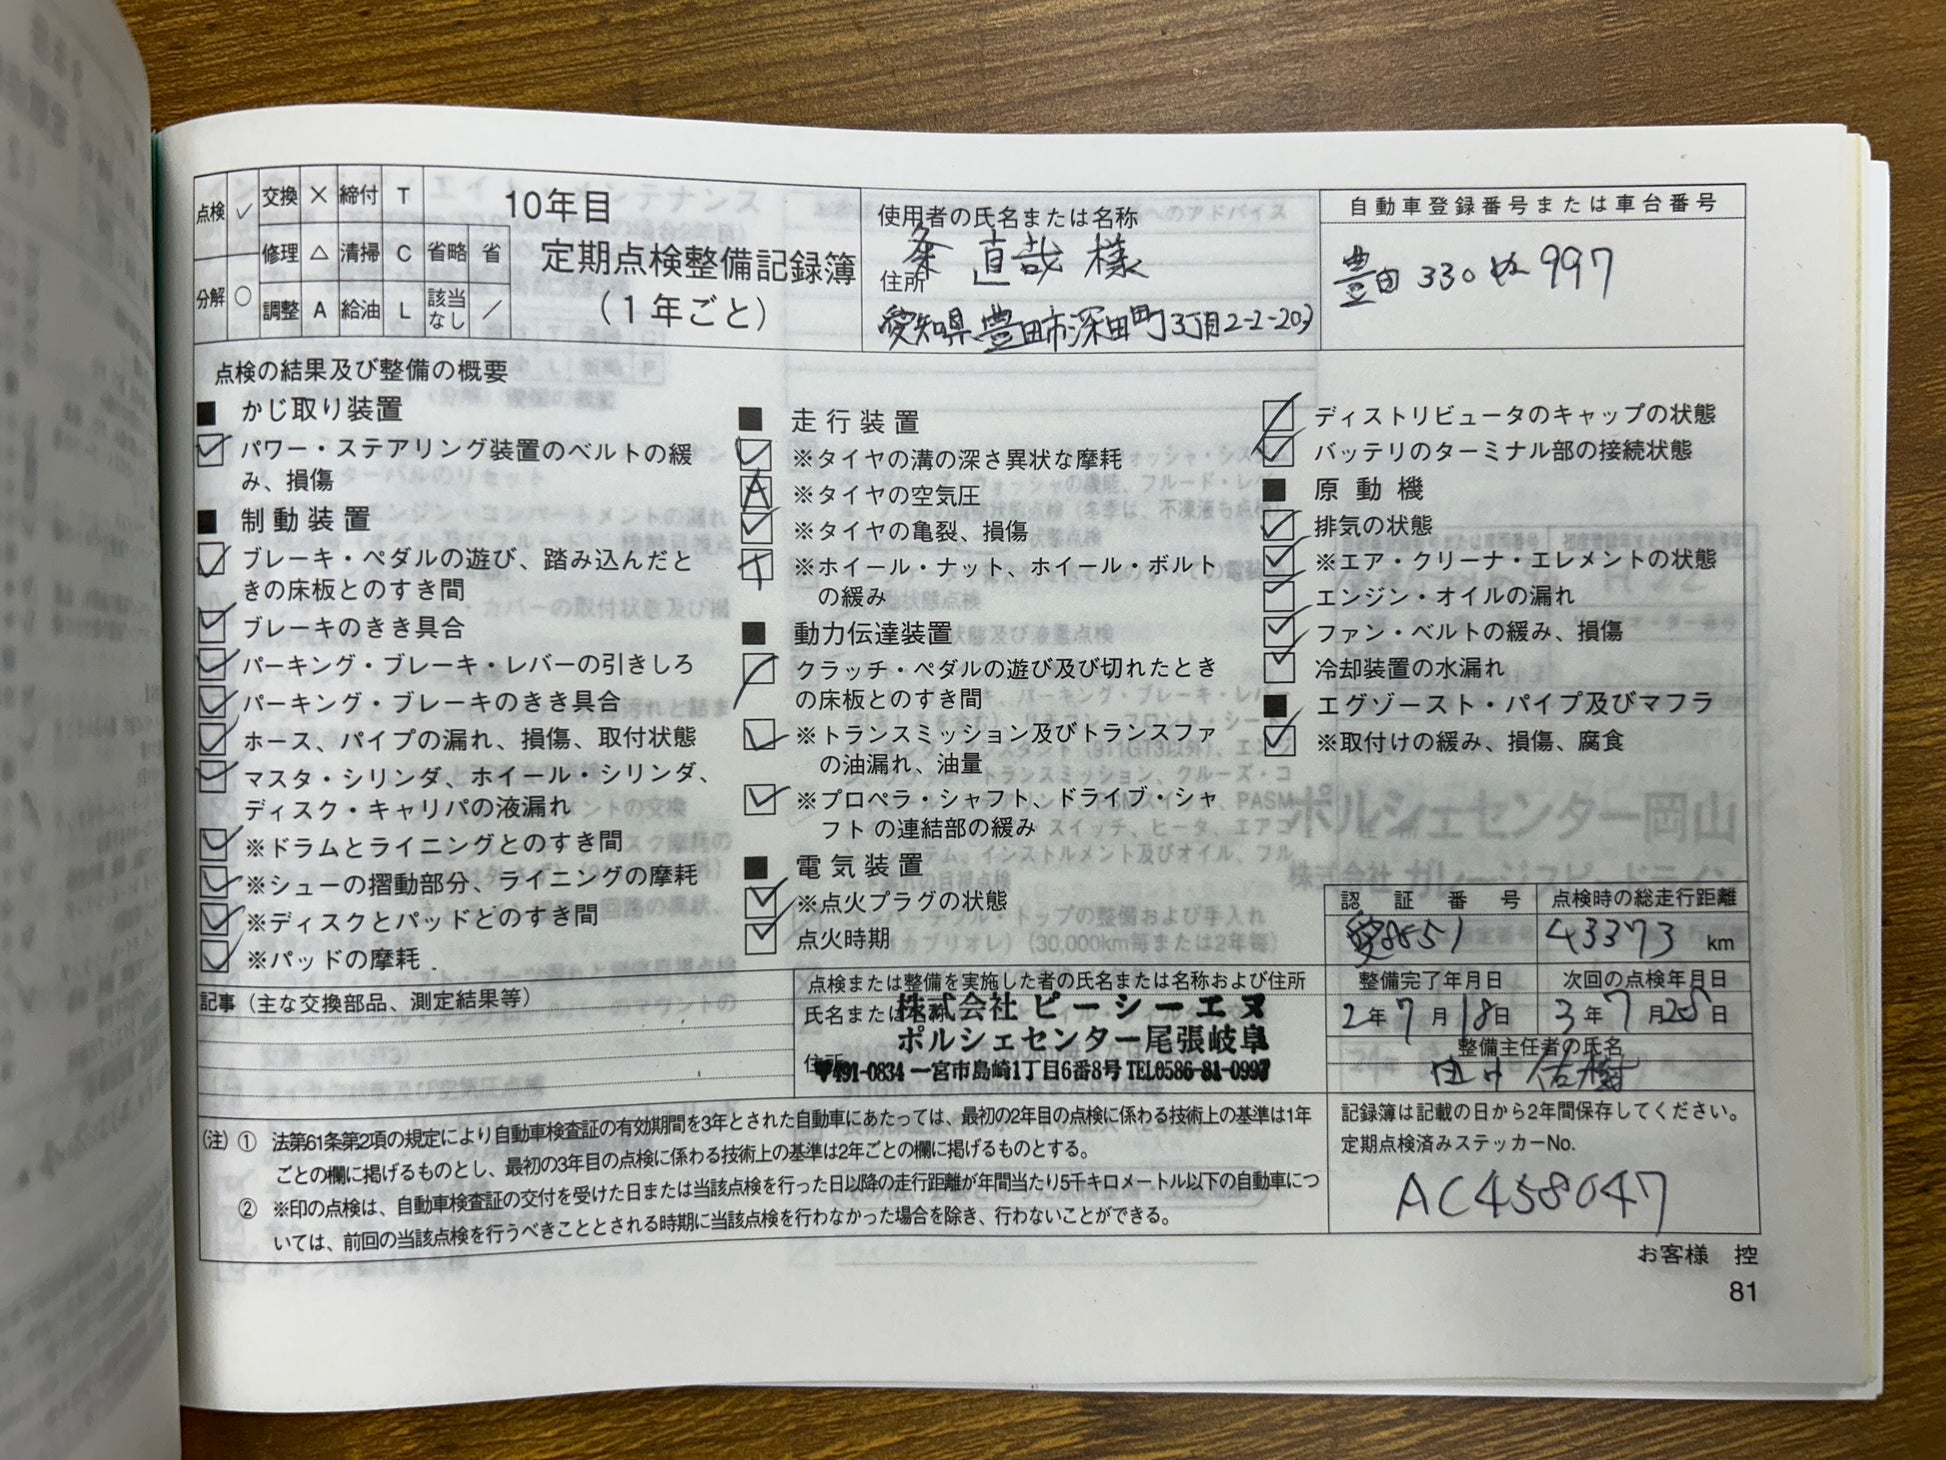 点検 ✓ 交換 × 締付 T
修理 △ 清掃 C 省略 省
分解 ○ 調整 A 給油 L 該当なし ／
10年目
定期点検整備記録簿
(1年ごと)
使用者の氏名または名称
条 直哉 様
住所
愛知県豊田市深田町3丁目2-2-203
自動車登録番号または車台番号
豊田 330 ぬ 997
点検の結果及び整備の概要
■ かじ取り装置
パワー・ステアリング装置のベルトの緩
み、損傷
■ 制動装置
ブレーキ・ペダルの遊び、踏み込んだと
きの床板とのすき間
ブレーキのきき具合
パーキング・ブレーキ・レバーの引きしろ
パーキング・ブレーキのきき具合
ホース、パイプの漏れ、損傷、取付状態
マスタ・シリンダ、ホイール・シリンダ、
ディスク・キャリパの液漏れ
※ドラムとライニングとのすき間
※シューの摺動部分、ライニングの摩耗
※ディスクとパッドとのすき間
※パッドの摩耗
■ 走行装置
※タイヤの溝の深さ異状な摩耗
A ※タイヤの空気圧
※タイヤの亀裂、損傷
T ※ホイール・ナット、ホイール・ボルト
の緩み
■ 動力伝達装置
クラッチ・ペダルの遊び及び切れたとき
の床板とのすき間
※トランスミッション及びトランスファ
の油漏れ、油量
※プロペラ・シャフト、ドライブ・シャ
フト の連結部の緩み
■ 電気装置
※点火プラグの状態
点火時期
ディストリビュータのキャップの状態
バッテリのターミナル部の接続状態
■ 原動機
排気の状態
※エア・クリーナ・エレメントの状態
エンジン・オイルの漏れ
ファン・ベルトの緩み、損傷
冷却装置の水漏れ
■ エグゾースト・パイプ及びマフラ
※取付けの緩み、損傷、腐食
認証番号
愛8851
点検時の総走行距離
43373 km
整備完了年月日
2年7月18日
次回の点検年月日
3年7月28日
整備主任者の氏名
田中 佑樹
記事（主な交換部品、測定結果等）
点検または整備を実施した者の氏名または名称および住所
氏名または名称
株式会社 ピーシーエヌ
ポルシェセンター尾張岐阜
住所
〒491-0834 一宮市島崎1丁目6番8号 TEL0586-81-0997
（注）① 法第61条第2項の規定により自動車検査証の有効期間を3年とされた自動車にあたっては、最初の2年目の点検に係わる技術上の基準は1年
ごとの欄に掲げるものとし、最初の3年目の点検に係わる技術上の基準は2年ごとの欄に掲げるものとする。
② ※印の点検は、自動車検査証の交付を受けた日または当該点検を行った日以降の走行距離が年間当たり5千キロメートル以下の自動車につ
いては、前回の当該点検を行うべきこととされる時期に当該点検を行わなかった場合を除き、行わないことができる。
記録簿は記載の日から2年間保存してください。
定期点検済みステッカーNo.
AC458047
お客様 控
81